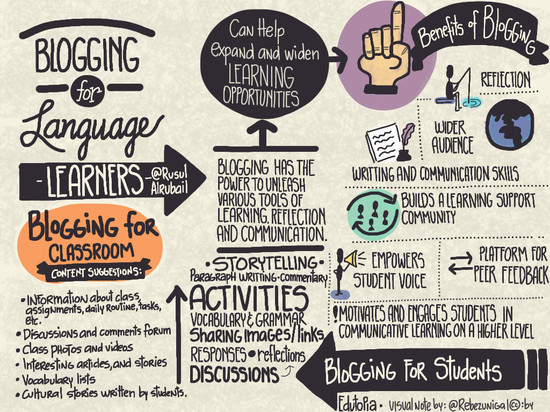 BLOGGING
for
Language
- LEARNERS -@Rusul
Alrubail
Blogging for
CLASSROOM
CONTENT SUGGESTIONS:
• INFORMATION about class,
assignments, daily Routine, tasks,
etc.
• Discussions and comments forum
• Class Photos and videos
• Interesting articles, and stories
• Vocabulary lists
• Cultural stories written by students.
Can Help
Expand and widen
LEARNING
OPPORTUNITIES
BLOGGING HAS THE
POWER TO UNLEASH
VARIOUS TOOLS OF
LEARNING, REFLECTION
AND COMMUNICATION.
• STORYTELLING •
Paragraph WRITTING • commentary
ACTIVITIES
VOCABULARY & GRAMMAR
SHARING Images/links
RESPONSES • reflections
DISCUSSIONS
Benefits of Blogging
REFLECTION
WIDER
AUDIENCE
WRITTING AND COMMUNICATION SKILLS
BUILDS A LEARNING SUPPORT
COMMUNITY
EMPOWERS
STUDENT VOICE
PLATFORM FOR
PEER FEEDBACK
! MOTIVATES AND ENGAGES STUDENTS IN
COMMUNICATIVE LEARNING ON A HIGHER LEVEL
BLOGGING FOR STUDENTS
Edutopia • VISUAL NOTE by: @Rebezuniga(c):by